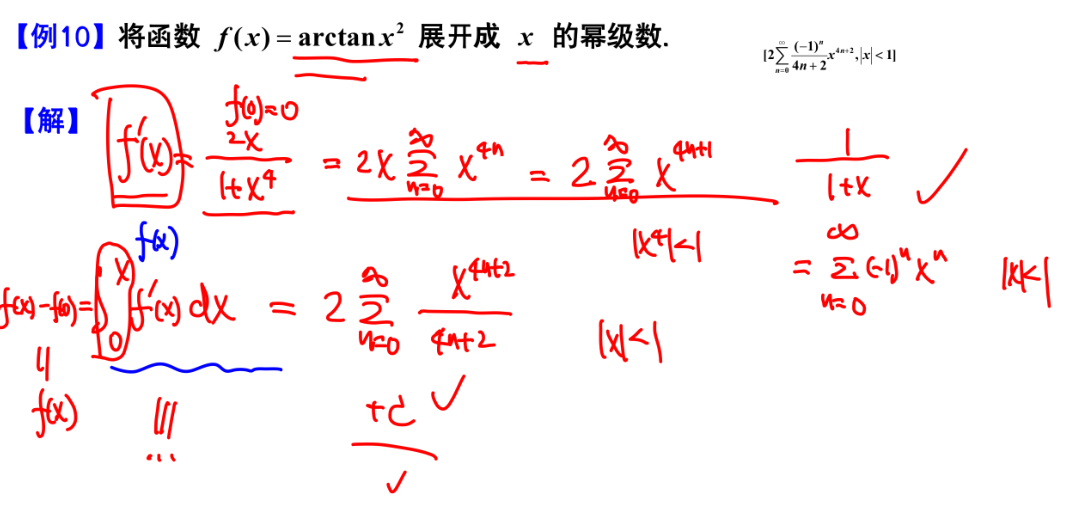 【例10】将函数 f(x) = arctan x² 展开成 x 的幂级数.
[2∑_{n=0}^{∞} (-1)ⁿ/(4n+2) x^{4n+2}, |x| < 1]
【解】
f(0)=0
f'(x) = 2x/(1+x⁴) = 2x ∑_{n=0}^{∞} x^{4n} = 2 ∑_{n=0}^{∞} x^{4n+1}
|x⁴|<1
1/(1+x) ✓
= ∑_{n=0}^{∞} (-1)ⁿ xⁿ |x|<1
f(x)
f(x)-f(0) = ∫₀ˣ f'(x) dx = 2 ∑_{n=0}^{∞} x^{4n+2}/(4n+2) |x|<1
||
f(x)
!!!
+C ✓
✓